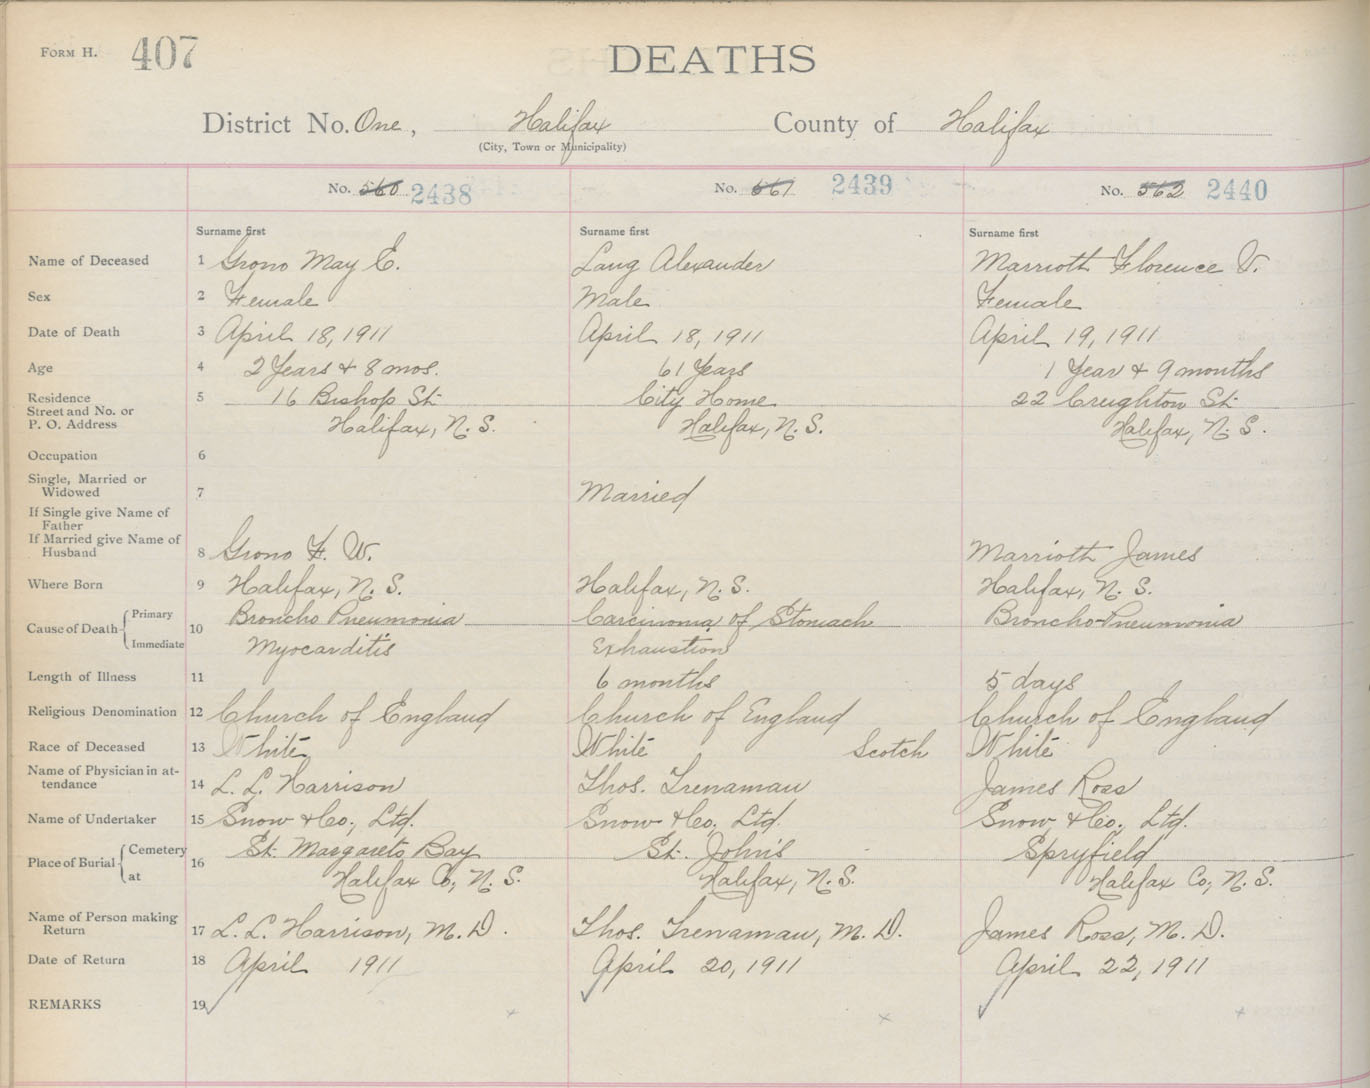 FORM H. 407
DEATHS
District No. One, Halifax County of Halifax
(City, Town or Municipality)
No. 560 2438 No. 561 2439 No. 562 2440
Surname first Surname first Surname first
Name of Deceased 1 Grono May E. Lang Alexander Marrioth Florence V.
Sex 2 Female Male Female
Date of Death 3 April 18, 1911 April 18, 1911 April 19, 1911
Age 4 2 Years & 8 mos. 61 Years 1 Year & 9 months
Residence 5 16 Bishop St. City Home 22 Creighton St.
Street and No. or
P. O. Address Halifax, N. S. Halifax, N. S. Halifax, N. S.
Occupation 6
Single, Married or
Widowed 7 Married
If Single give Name of
Father
If Married give Name of
Husband 8 Grono F. W. Marrioth James
Where Born 9 Halifax, N. S. Halifax, N. S. Halifax, N. S.
Primary Broncho Pneumonia Carcinoma of Stomach Broncho-Pneumonia
Cause of Death 10
Immediate Myocarditis Exhaustion
Length of Illness 11 6 months 5 days
Religious Denomination 12 Church of England Church of England Church of England
Race of Deceased 13 White White Scotch White
Name of Physician in at-
tendance 14 L. L. Harrison Thos. Trenaman James Ross
Name of Undertaker 15 Snow & Co., Ltd. Snow & Co., Ltd. Snow & Co., Ltd.
Cemetery St. Margarets Bay St. John's Spryfield
Place of Burial 16
at Halifax Co., N. S. Halifax, N. S. Halifax Co., N. S.
Name of Person making
Return 17 L. L. Harrison, M. D. Thos. Trenaman, M. D. James Ross, M. D.
Date of Return 18 April 1911 April 20, 1911 April 22, 1911
REMARKS 19